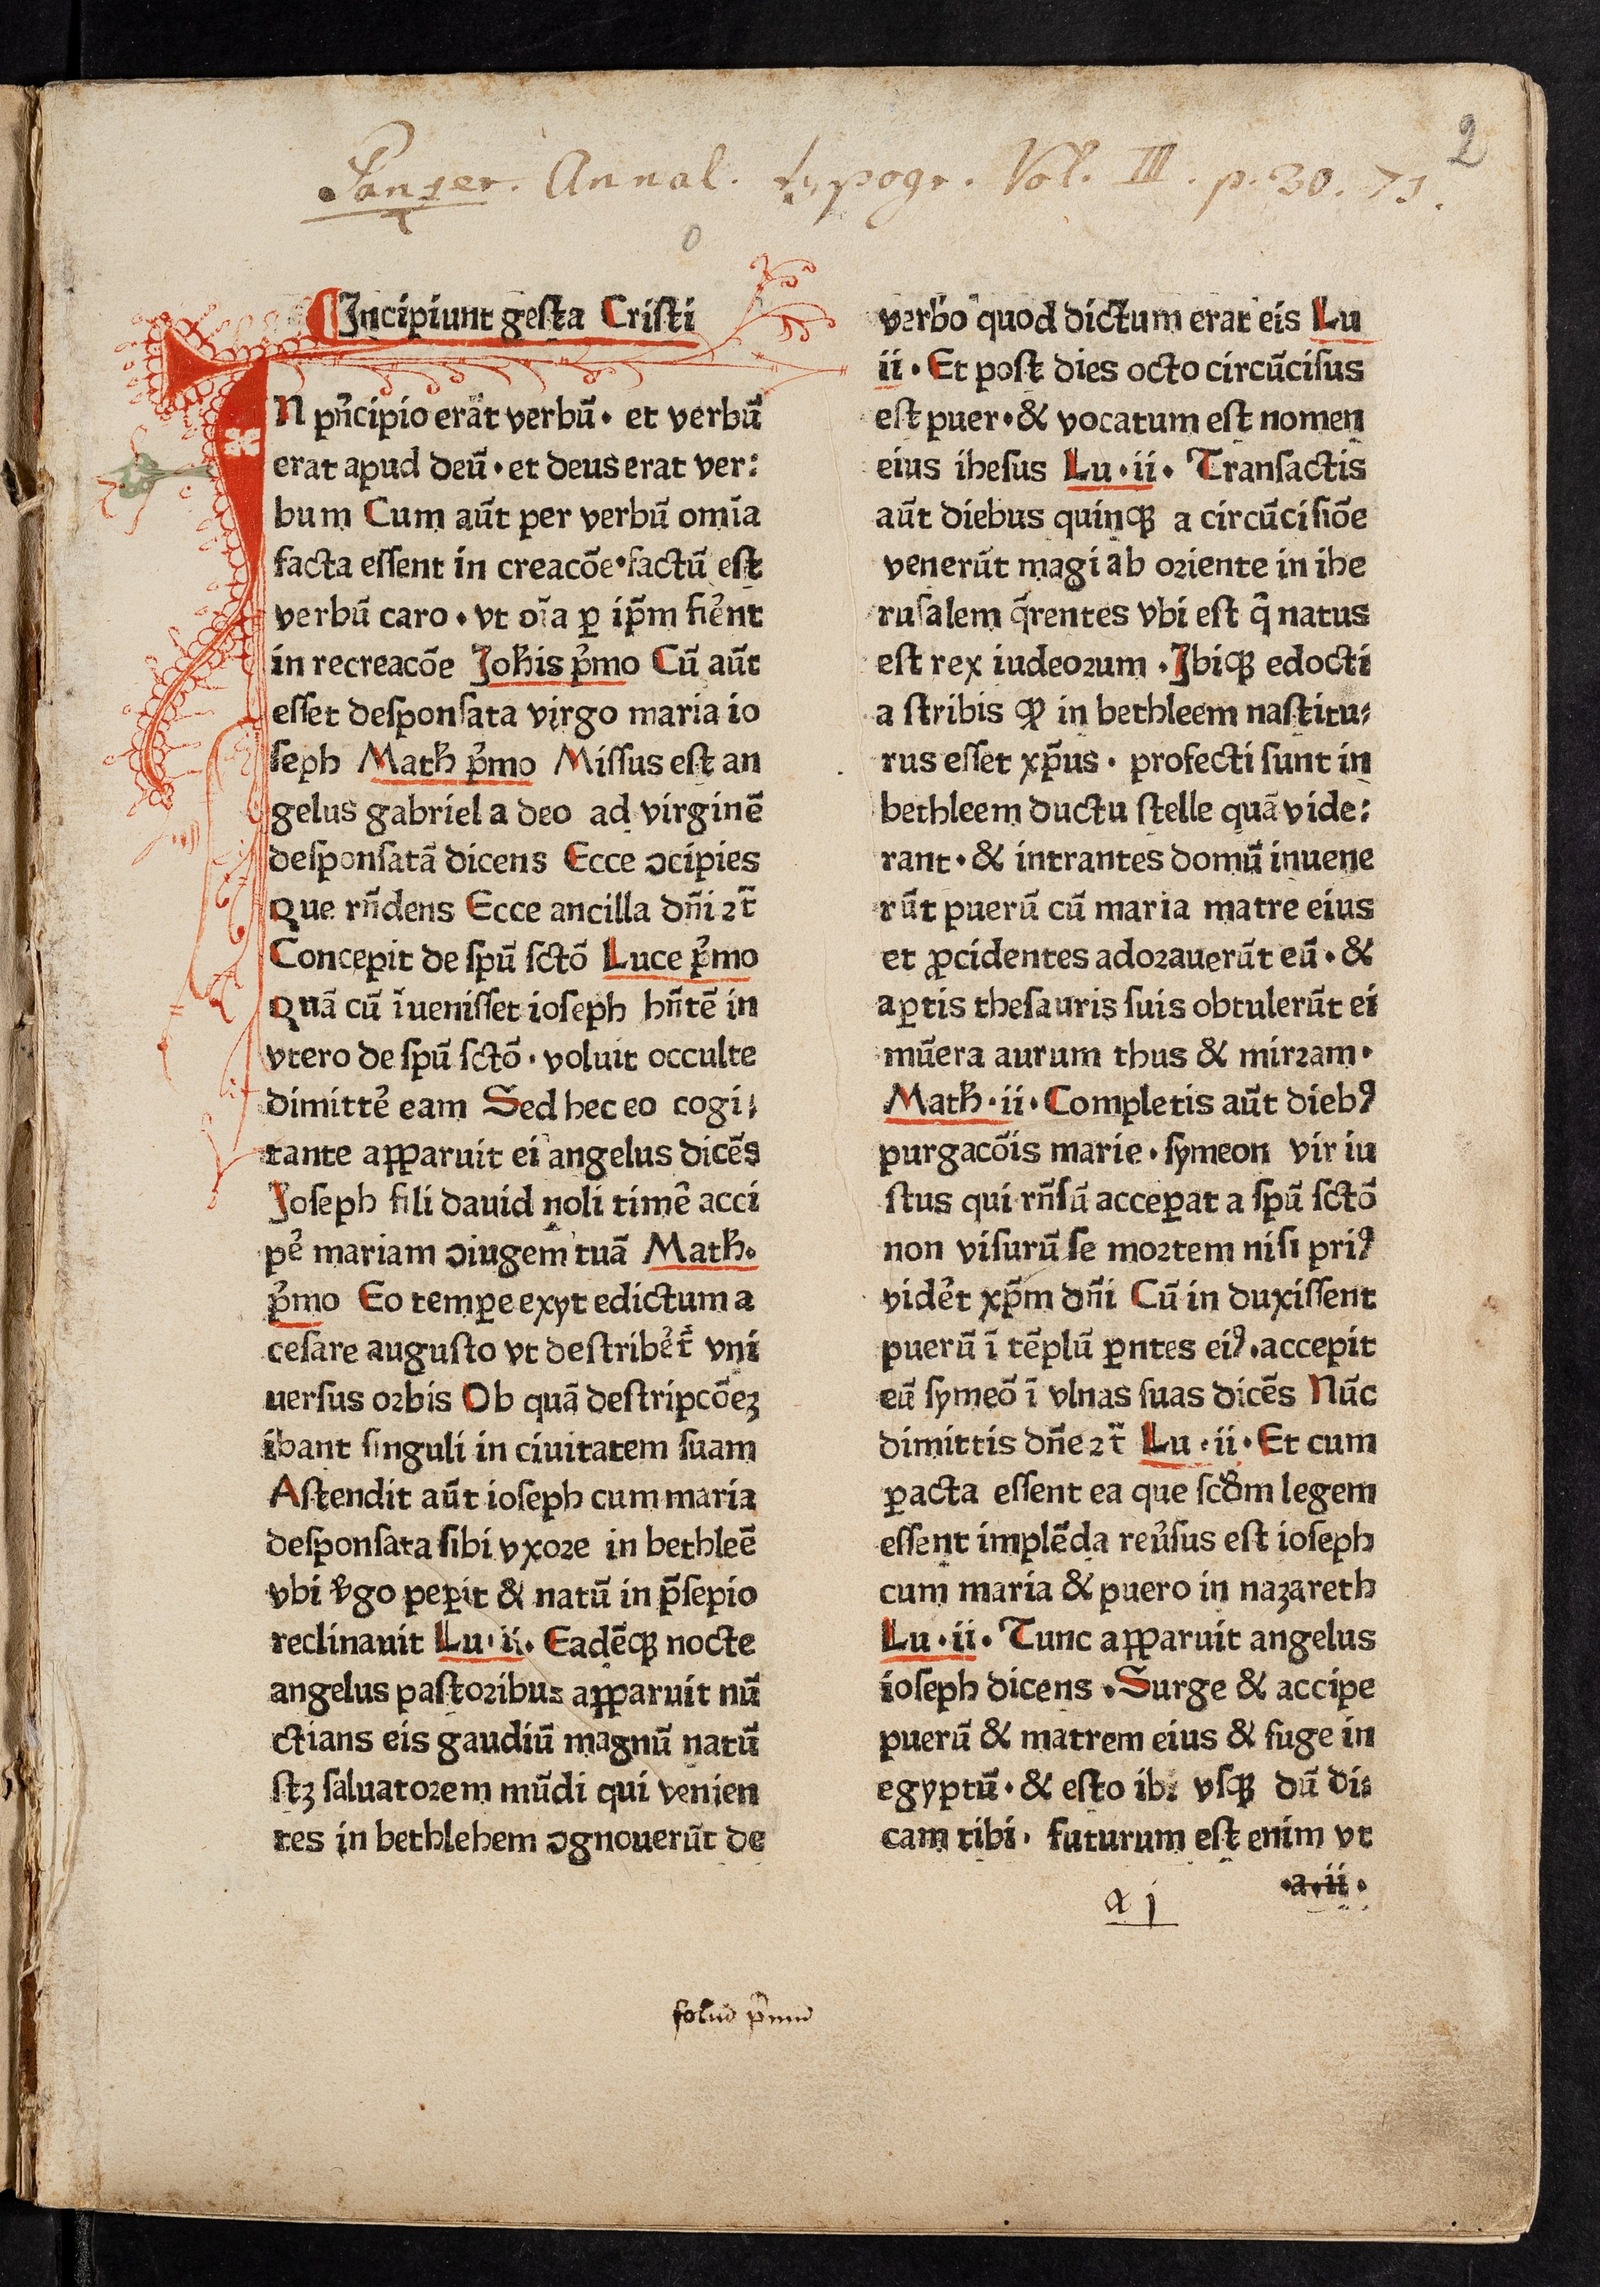 Panzer. Annal. typogr. Vol. III. p. 30. 71.
2
0
Incipiunt gesta Cristi
IN pn̄cipio erat verbū· et verbū
erat apud deū· et deus erat ver:
bum Cum aūt per verbū omīa
facta essent in creacōe·factū est
verbū caro· vt oīa ꝑ ip̄m fiēnt
in recreacōe Joh̄is p̄mo Cū aūt
esset desponsata virgo maria io
seph Math̄ p̄mo Missus est an
gelus gabriel a deo ad virginē
desponsatā dicens Ecce ɔcipies
Que rn̄dens Ecce ancilla dn̄i ⁊t̄
Concepit de spū sctō Luce p̄mo
Quā cū īuenisset ioseph hn̄tē in
vtero de spū sctō· voluit occulte
dimittē eam Sed hec eo cogi:
tante aꝑparuit ei angelus dicēs
Joseph fili dauid noli timē acci
pē mariam ɔiugem tuā Math̄·
p̄mo Eo tempe exyt edictum a
cesare augusto vt destribēt̄ vni
uersus orbis Ob quā destripcōeꝫ
ibant singuli in ciuitatem suam
Astendit aūt ioseph cum maria
desponsata sibi vxore in bethleē
vbi v̄go peꝑit & natū in p̄sepio
reclinauit Lu·ii· Eadēqꝫ nocte
angelus pastoribus aꝑparuit nū
ctians eis gaudiū magnū natū
stꝫ saluatorem mūdi qui venien
tes in bethlehem ɔgnouerūt de
verbo quod dictum erat eis Lu
ii· Et post dies octo circūcisus
est puer·& vocatum est nomen
eius ihesus Lu·ii· Transactis
aūt diebus quinqꝫ a circūcisiōe
venerūt magi ab oriente in ihe
rusalem q̄rentes vbi est q̄ natus
est rex iudeorum·Jbiqꝫ edocti
a stribis ꝙ in bethleem nastitu:
rus esset xp̄us· profecti sunt in
bethleem ductu stelle quā vide:
rant·& intrantes domū inuene
rūt puerū cū maria matre eius
et ꝓcidentes adorauerūt eū·&
aꝑtis thesauris suis obtulerūt ei
mūera aurum thus & mirram·
Math̄·ii·Completis aūt diebꝰ
purgacōis marie·symeon vir iu
stus qui rn̄sū acceꝑat a spū sctō
non visurū se mortem nisi priꝰ
vidēt xp̄m dn̄i Cū in duxissent
puerū ī tēplū ꝑntes eiꝰ·accepit
eū symeō ī vlnas suas dicēs Nūc
dimittis dn̄e ⁊t̄ Lu·ii·Et cum
ꝑacta essent ea que scd̄m legem
essent implēda reūsus est ioseph
cum maria & puero in nazareth
Lu·ii· Tunc aꝑparuit angelus
ioseph dicens·Surge & accipe
puerū & matrem eius & fuge in
egyptū·& esto ibi vsqꝫ dū di:
cam tibi· futurum est enim vt
·a·ii·
a j
foliū p̄mū